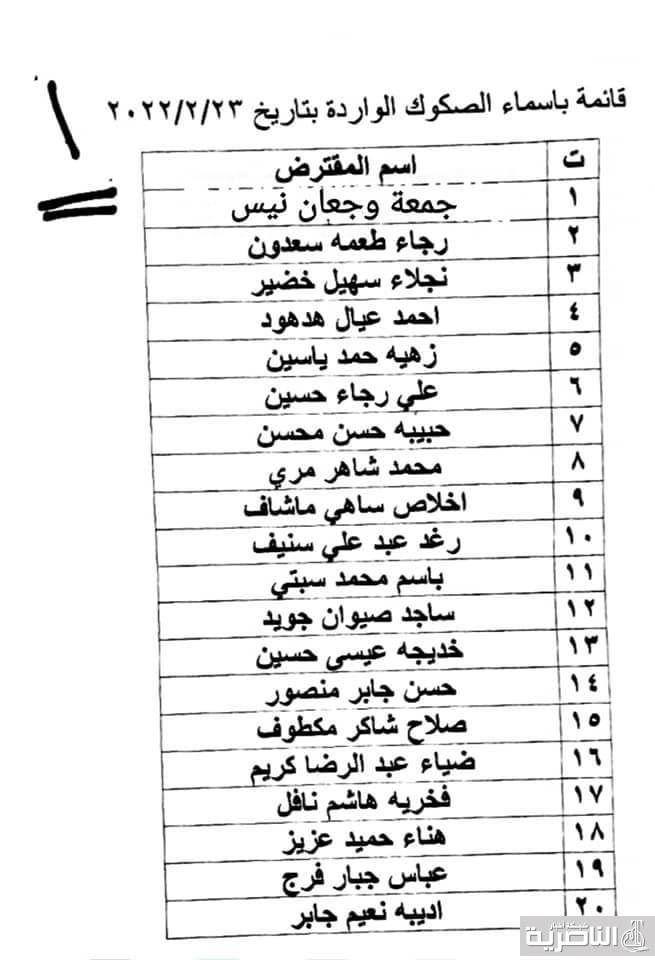 قائمة باسماء الصكوك الواردة بتاريخ ٢٠٢٢/٢/٢٣
١
ت اسم المقترض
١ جمعة وجعان نيس
٢ رجاء طعمه سعدون
٣ نجلاء سهيل خضير
٤ احمد عيال هدهود
٥ زهيه حمد ياسين
٦ علي رجاء حسين
٧ حبيبه حسن محسن
٨ محمد شاهر مري
٩ اخلاص ساهي ماشاف
١٠ رغد عبد علي سنيف
١١ باسم محمد سبتي
١٢ ساجد صيوان جويد
١٣ خديجه عيسى حسين
١٤ حسن جابر منصور
١٥ صلاح شاكر مكطوف
١٦ ضياء عبد الرضا كريم
١٧ فخريه هاشم نافل
١٨ هناء حميد عزيز
١٩ عباس جبار فرج
٢٠ اديبه نعيم جابر
شبكة اخبار
الناصرية